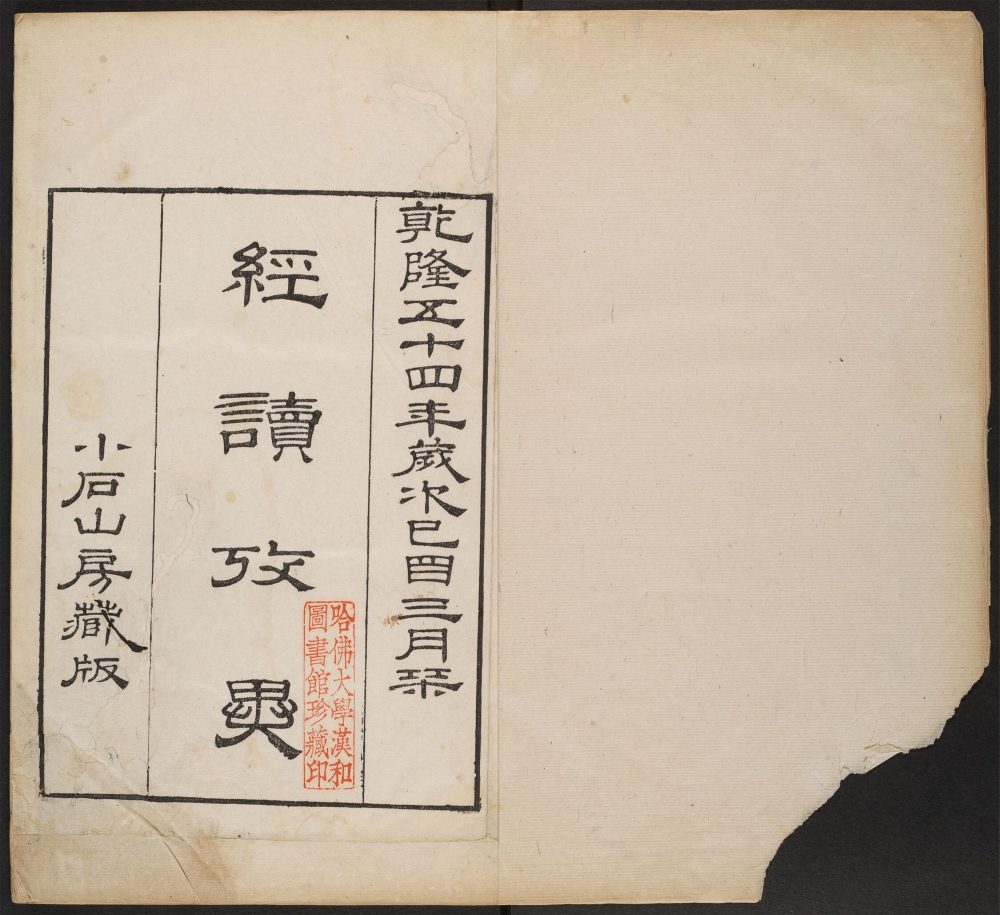 乾隆五十四年歲次己酉三月琹
經讀攷異
小石山房藏版
哈佛大學漢和
圖書館珍藏印